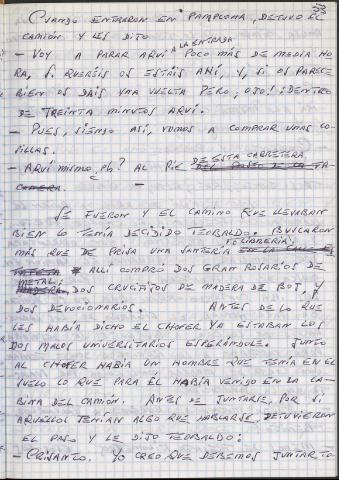 53
CUANDO ENTRARON EN PAMPLONA, DETUVO EL
CAMIÓN Y LES DIJO
- VOY A PARAR AQUÍ A LA ENTRADA POCO MÁS DE MEDIA HO
RA, SI QUERÉIS OS ESTÁIS AHÍ, Y, SI OS PARECE
BIEN OS DAIS UNA VUELTA PERO, ¡OJO! ¡DENTRO
DE TREINTA MINUTOS AQUÍ.
- PUES, SIENDO ASÍ, VAMOS A COMPRAR UNAS CO
SILLAS.
- AQUÍ MISMO ¿eh? AL PIE DE ESTA CARRETERA
DEL PASEO DE LA TA
CONERA. -
SE FUERON Y EL CAMINO QUE LLEVABAN
BIEN LO TENÍA DECIDIDO TEOBALDO. BUSCARON
MÁS QUE DE PRISA UNA SANTERÍA O LIBRERÍA; EN LA CALLE
ALLÍ COMPRÓ DOS GRAN ROSARIOS DE
METAL; MADERA, DOS CRUCIFIJOS DE MADERA DE BOJ, Y
DOS DEVOCIONARIOS. ANTES DE LO QUE
LES HABÍA DICHO EL CHOFER YA ESTABAN LOS
DOS MALOS UNIVERSITARIOS ESPERÁNDOLE. JUNTO
AL CHOFER HABÍA UN HOMBRE QUE TENÍA EN EL
SUELO LO QUE PARA ÉL HABÍA VENIDO EN LA CA-
BINA DEL CAMIÓN. ANTES DE JUNTARSE, POR SI
AQUELLOS TENÍAN ALGO QUE HABLARSE, DETUVIERON
EL PASO Y LE DIJO TEOBALDO:
- CRISANTO. YO CREO QUE DEBEMOS JUNTAR TO